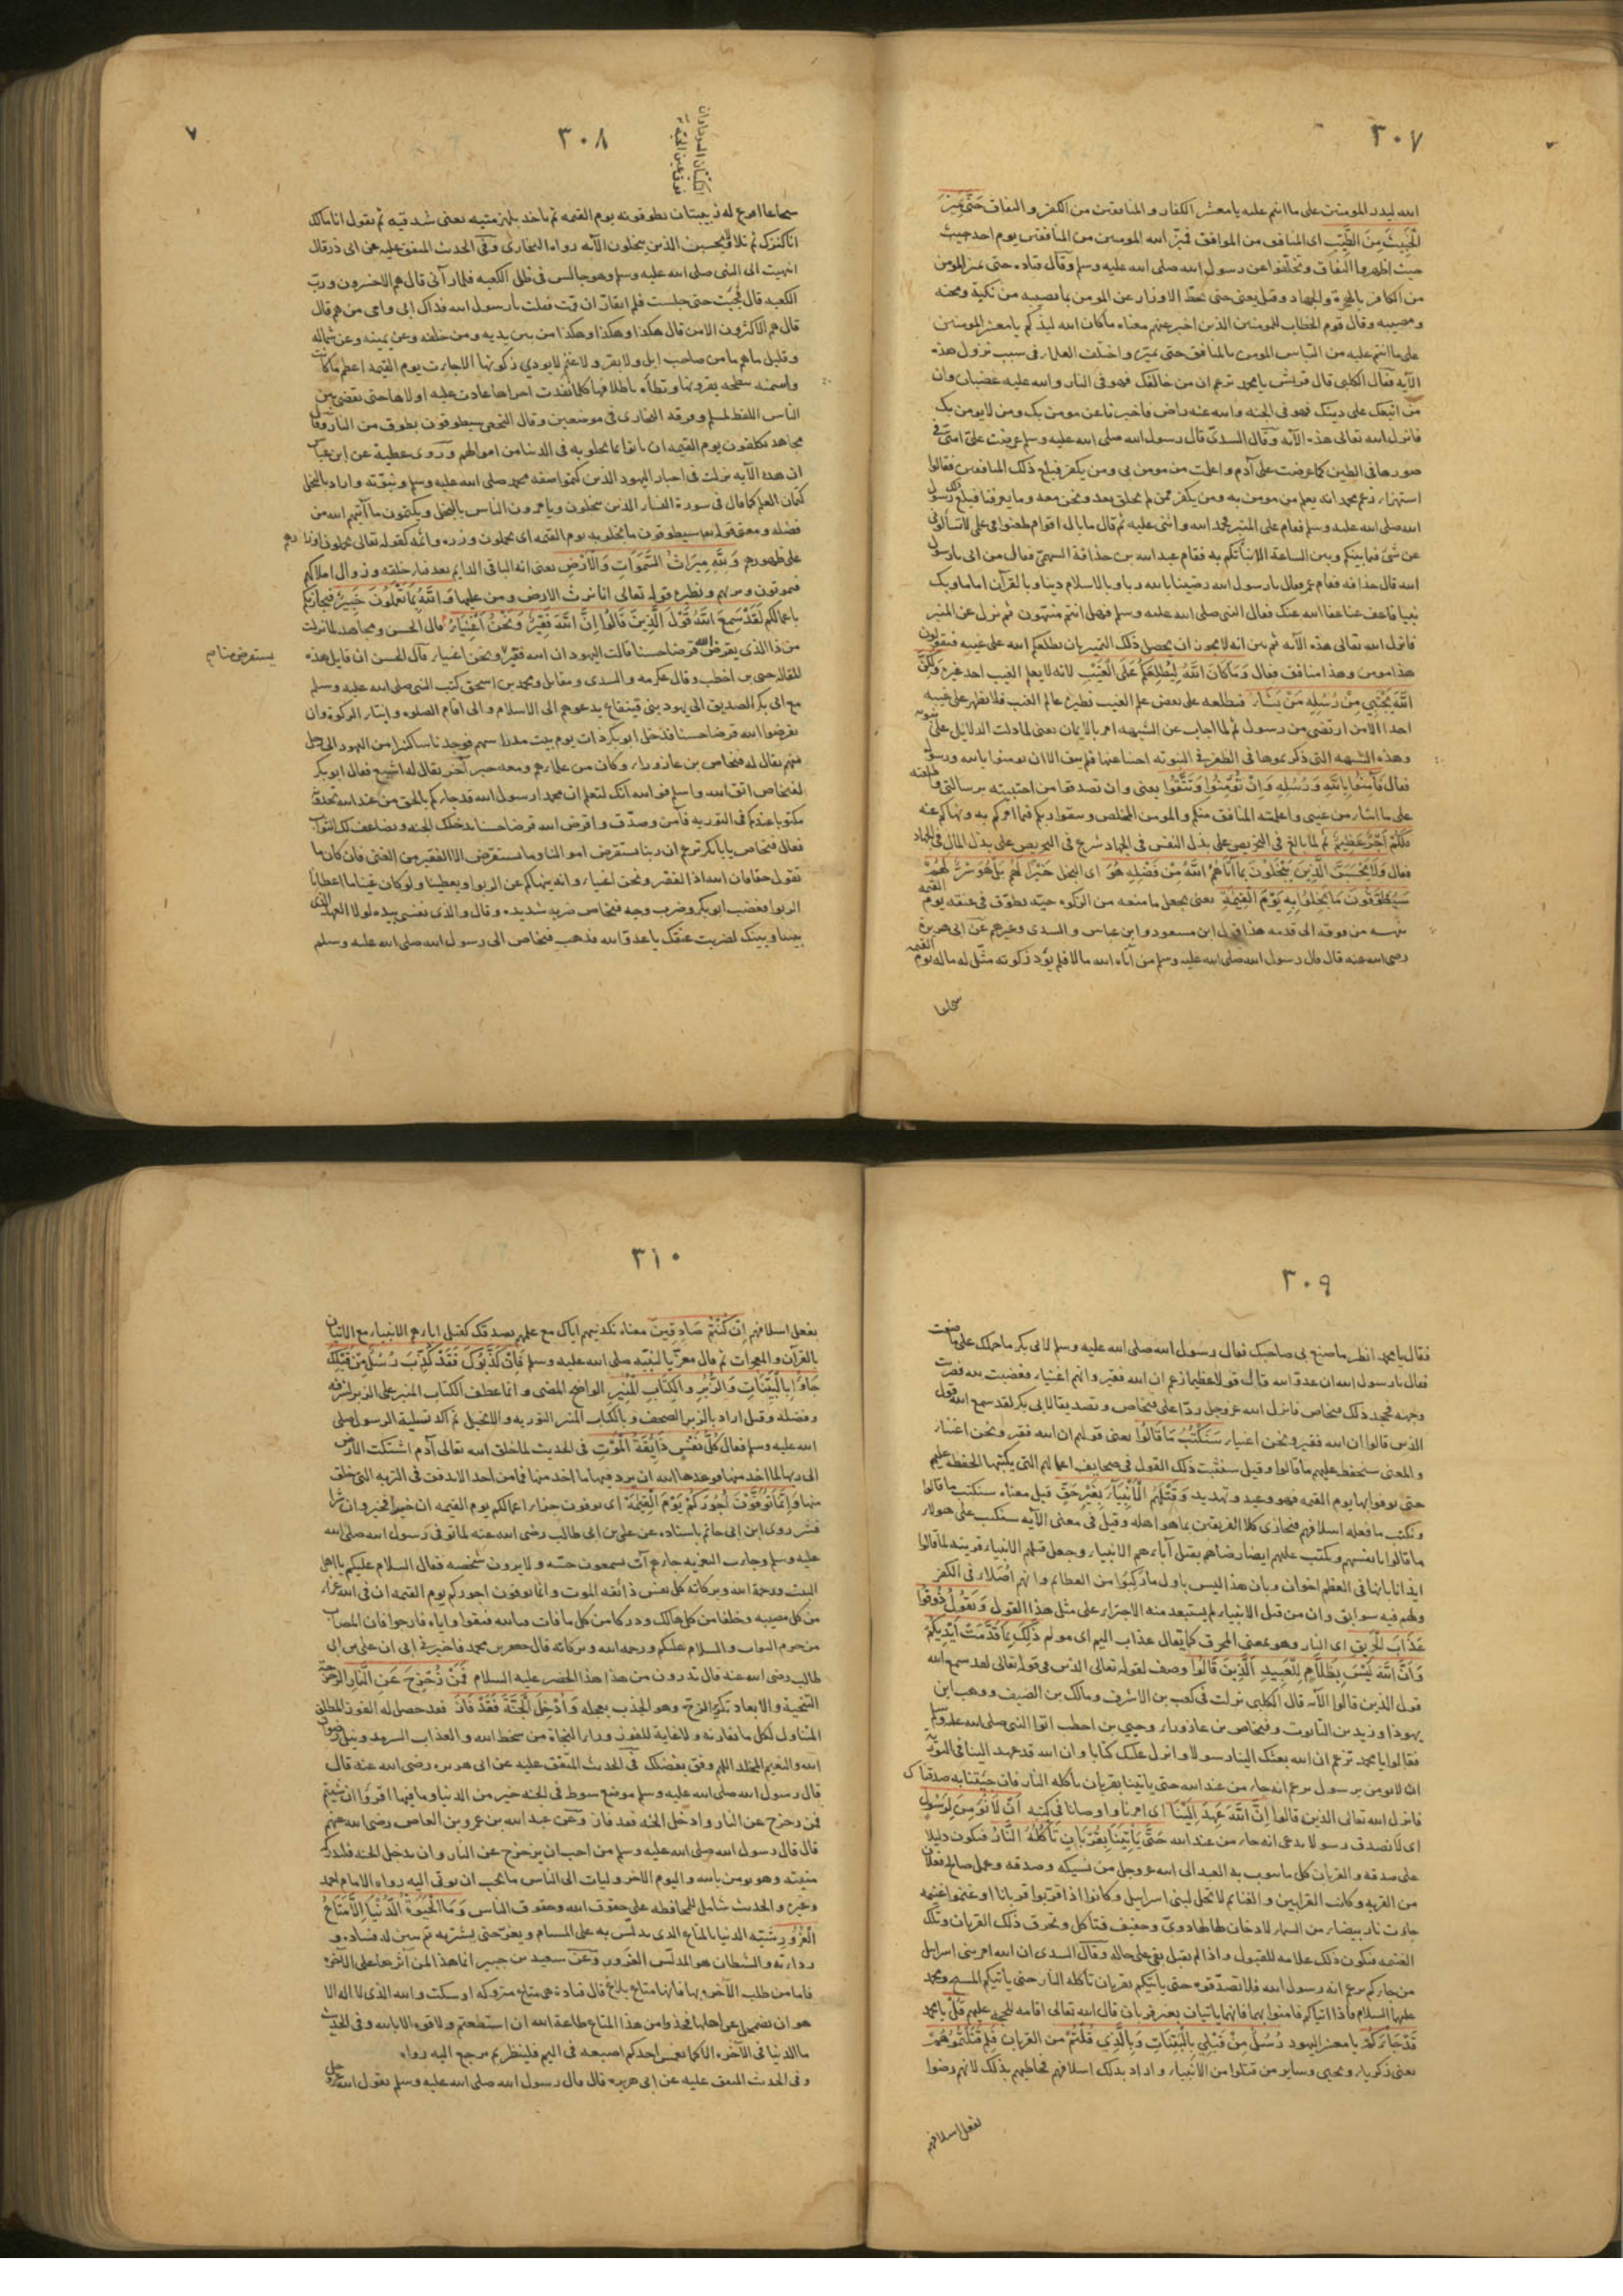 ٣٠٧
الله ليذر المومنين على ما انتم عليه يا معشر الكفار والمنافقين من الكفر والنفاق حَتَّى يَمِيْزَ
الْخَبِيثَ مِنَ الطَّيِّبِ اى المنافق من الموافق فميّز الله المومنين من المنافقين يوم احد حيث
حيث اظهروا النفاق وتخلّفوا عن رسول الله صلى الله عليه وسلم وقال قتاده حتى يميز المومن
من الكافر بالهجرة والجهاد وقيل يعنى حتى يحطّ الاوزار عن المومن بما يصيبه من نكبة ومحنه
ومصيبه وقال قوم الخطاب للمومنين الذين اخبر عنهم معناه ما كان الله ليذركم يا معشر المومنين
على ما انتم عليه من التباس المومن بالمنافق حتى يميّز واختلف العلماء فى سبب نزول هذه
الآيه فقال الكلبى قال قريش يا محمد تزعم ان من خالفك فهو فى النار والله عليه غضبان وان
من اتبعك على دينك فهو فى الجنه والله عنه راض فاخبرنا عن مومن بك ومن لا يومن بك
فانزل الله تعالى هذه الآيه وقال السدىّ قال رسول الله صلى الله عليه وسلم عرضت علىّ امتى فى
صورها فى الطين كما عرضت على آدم واعلمت من مومن بى ومن يكفر فبلغ ذلك المنافقين فقالوا
استهزاء زعم محمد انه يعلم من مومن به ومن يكفر ممن لم يخلق بعد ونحن معه وما يعرفنا فبلغ ذلك رسول
الله صلى الله عليه وسلم فقام على المنبر فحمد الله واثنى عليه ثم قال ما بال اقوام طعنوا فى علمى لا تسألونى
عن شئ فيما بينكم وبين الساعة الا نبأتكم به فقام عبد الله بن حذافة السهمىّ فقال من ابى يا رسول
الله قال حذافه فقام عمر فقال يا رسول الله رضينا بالله ربا وبالاسلام دينا وبالقرآن اماما وبك
نبيا فاعف عنا عفا الله عنك فقال النبى صلى الله عليه وسلم فهل انتم منتهون ثم نزل عن المنبر
فانزل الله تعالى هذه الآيه ثم بين انه لا يجوز ان يحصل ذلك التميز بان يطلعكم الله على غيبه فيقولون
هذا مومن وهذا منافق فقال وَمَا كَانَ اللّهُ لِيُطْلِعَكُمْ عَلَى الْغَيْبِ لانه لا يعلم الغيب احد غيره وَلَكِنَّ
اللّهَ يَجْتَبِي مِنْ رُسُلِهِ مَنْ يَشَاءُ فيطلعه على بعض علم الغيب نظيره عالم الغيب فلا يظهر على غيبه
احدا الا من ارتضى من رسول ثم لما اجاب عن الشبهه امر بالايمان يعنى لما دلت الدلائل على نبوته
وهذه الشبهه التى ذكرتموها فى الطعن فى النبوته اجبنا عنها فلم يبق الا ان تومنوا بالله ورسوله
فقال فَآمِنُوا بِاللّهِ وَرُسُلِهِ وَاِنْ تُؤْمِنُوا وَتَتَّقُوا يعنى وان تصدقوا من اجتبيته برسالتى
فَلَكُمْ اَجْرٌ عَظِيْمٌ ثم لما بالغ فى التحريص على بذل النفس فى الجهاد شرع فى التحريص على بذل المال فى الجهاد
فقال وَلَا يَحْسَبَنَّ الَّذِينَ يَبْخَلُونَ بِمَا آتَاهُمُ اللّهُ مِنْ فَضْلِهِ هُوَ اى البخل خَيْرًا لَهُمْ بَلْ هُوَ شَرٌّ لَهُمْ
سَيُطَوَّقُونَ مَا بَخِلُوا بِهِ يَوْمَ الْقِيمَةِ يعنى يجعل ما منعه من الزكوه حيّه تطوّق فى عنقه يوم القيمه
تنهسه من فوقه الى قدمه هذا قول ابن مسعود وابن عباس والسدى وغيرهم عن ابى هريرة
رضى الله عنه قال قال رسول الله صلى الله عليه وسلم من آتاه الله مالا فلم يؤد زكوته مثّل له ماله يوم القيمه
شجاعا
٣٠٨
٧
شجاعا اقرع له زبيبتان يطوقونه يوم القيمه ثم ياخذ بلهزمتيه يعنى شدقيه ثم يقول انا مالك
انا كنزك ثم تلا ولا يحسبن الذين يبخلون الآيه رواه البخارى وفى الحديث المتفق عليه عن ابى ذر قال
انتهيت الى النبى صلى الله عليه وسلم وهو جالس فى ظل الكعبه فلما رآنى قال هم الاخسرون وربّ
الكعبه قال فجئت حتى جلست فلم اتقارّ ان قمت فقلت يا رسول الله فداك ابى وامى من هم قال
قال هم الاكثرون الا من قال هكذا وهكذا وهكذا من بين يديه ومن خلفه وعن يمينه وعن شماله
وقليل ما هم ما من صاحب ابل ولا بقر ولا غنم لا يودى زكوتها الا جاءت يوم القيمه اعظم ما كانت
واسمنه تنطحه بقرونها وتطأه باظلافها كلما نفدت اخراها عادت عليه اولاها حتى يقضى بين
الناس اللفظ لمسلم وفرقه البخارى فى موضعين وقال النخعى سيطوقون بطوق من النار وقال
مجاهد يكلفون يوم القيمه ان ياتوا بما بخلوا به فى الدنيا من اموالهم وروى عطية عن ابن عباس
ان هذه الآيه نزلت فى احبار اليهود الذين كتموا صفه محمد صلى الله عليه وسلم ونبوّته واراد بالبخل
كتمان العلم كما قال فى سورة النساء الذين يبخلون ويامرون الناس بالبخل ويكتمون ما آتيهم الله من
فضله ومعنى قوله سيطوقون ما بخلوا به يوم القيمه اى يحملون وزره واثمه كقوله تعالى يحملون اوزارهم
على ظهورهم وَلِلّهِ مِيرَاثُ السَّمَوَاتِ وَالْاَرْضِ يعنى انه الباقى الدايم بعد فناء خلقه وزوال املاكهم
فيموتون ويرثهم ونظيره قوله تعالى انا نحن نرث الارض ومن عليها وَاللّهُ بِمَا تَعْمَلُونَ خَبِيرٌ فيجازيكم
باعمالكم لَقَدْ سَمِعَ اللّهُ قَوْلَ الَّذِينَ قَالُوا اِنَّ اللّهَ فَقِيرٌ وَنَحْنُ اَغْنِيَاءُ قال الحسن ومجاهد لما نزلت
من ذا الذى يقرض الله قرضا حسنا قالت اليهود ان الله فقير ونحن اغنياء قال الحسن ان قايل هذه
للقاله حيى بن اخطب وقال عكرمه والسدى ومقاتل ومحمد بن اسحق كتب النبى صلى الله عليه وسلم
مع ابى بكر الصديق الى يهود بنى قينقاع يدعوهم الى الاسلام والى اقام الصلوه وايتاء الزكوة وان
يقرضوا الله قرضا حسنا فدخل ابو بكر ذات يوم بيت مدراسهم فوجد ناسا كثيرا من اليهود الى رجل
منهم يقال له فنحاص بن عازوراء وكان من علمائهم ومعه حبر آخر يقال له اشيع فقال ابو بكر
لفنحاص اتق الله واسلم فوالله انك لتعلم ان محمدا رسول الله قد جاءكم بالحق من عند الله تجدونه
مكتوبا عندكم فى التوريه فآمن وصدّق واقرض الله قرضا حسنا يدخلك الجنه ويضاعف لك الثواب
فقال فنحاص يا ابا بكر تزعم ان ربنا يستقرض اموالنا وما يستقرض الا الفقير من الغنى فان كان ما
تقول حقا فان الله اذا لفقير ونحن اغنياء وانه ينهاكم عن الربوا ويعطينا ولو كان غنيا ما اعطانا
الربوا فغضب ابو بكر وضرب وجه فنحاص ضربه شديده وقال والذى نفسى بيده لولا العهد الذى
بيننا وبينك لضربت عنقك يا عدوّ الله فذهب فنحاص الى رسول الله صلى الله عليه وسلم
٣٠٩
فقال يا محمد انظر ما صنع بى صاحبك فقال رسول الله صلى الله عليه وسلم لابى بكر ما حملك على ما صنعت
فقال يا رسول الله ان عدو الله قال قولا عظيما زعم ان الله فقير وانهم اغنياء فغضبت لله فضربت
وجهه فجحد ذلك فنحاص فانزل الله عز وجل ردّا على فنحاص وتصديقا لابى بكر لقد سمع الله قول
الذين قالوا ان الله فقير ونحن اغنياء سَنَكْتُبُ مَا قَالُوا يعنى قولهم ان الله فقير ونحن اغنياء
والمعنى سنحفظ عليهم ما قالوا وقيل سنثبت ذلك القول فى صحايف اعمالهم التى يكتبها الحفظة عليهم
حتى يوفوا بها يوم القيمه فهو وعيد وتهديد وَقَتْلَهُمُ الْاَنْبِيَاءَ بِغَيْرِ حَقٍّ قيل معناه سنكتب ما قالوا
ونكتب ما فعله اسلافهم فنجازى كلا الفريقين بما هو اهله وقيل فى معنى الآيه سنكتب على هولاء
ما قالوا بانفسهم ونكتب عليهم ايضا رضاهم بقتل آبائهم الانبياء وجعل قتلهم الانبياء قرينه لما قالوا
ايذانا بانها فى العظم اخوان وبان هذا ليس باول ما ركبوا من العظائم وانهم اصلاء فى الكفر
ولهم فيه سوابق وان من قتل الانبياء لم يستبعد منه الاجتراء على مثل هذا القول وَنَقُولُ ذُوقُوا
عَذَابَ الْحَرِيقِ اى النار وهو بمعنى المحرق كما يقال عذاب اليم اى مولم ذَلِكَ بِمَا قَدَّمَتْ اَيْدِيكُمْ
وَاَنَّ اللّهَ لَيْسَ بِظَلَّامٍ لِلْعَبِيدِ اَلَّذِينَ قَالُوا وصف لقوله تعالى الذين فى قوله تعالى لقد سمع الله
قول الذين قالوا الآيه قال الكلبى نزلت فى كعب بن الاشرف ومالك بن الضيف ووهب ابن
يهوذا وزيد بن التابوت وفنحاص بن عازوراء وحيى بن اخطب اتوا النبى صلى الله عليه وسلم
فقالوا يا محمد تزعم ان الله بعثك الينا رسولا وانزل عليك كتابا وان الله قد عهد الينا فى التوريه
ان لا نومن برسول يزعم انه جاء من عند الله حتى ياتينا بقربان تاكله النار فان جئتنا به صدقناك
فانزل الله تعالى الذين قالوا اِنَّ اللّهَ عَهِدَ اِلَيْنَا اى امرنا واوصانا فى كتبه اَنْ لَا نُؤْمِنَ لِرَسُولٍ
اى لا نصدق رسولا يدعى انه جاء من عند الله حَتَّى يَاْتِيَنَا بِقُرْبَانٍ تَاْكُلُهُ النَّارُ فيكون دليلا
على صدقه والقربان كل ما يتقرب به العبد الى الله عز وجل من نسيكه وصدقه وعمل صالح فعلان
من القربه وكانت القرابين والغنائم لا تحل لبنى اسرائيل وكانوا اذا قربوا قربانا او غنموا غنيمه
جاءت نار بيضاء من السماء لا دخان لها لها دوىّ وحفيف فتاكل وتحرق ذلك القربان وتلك
الغنيمه فيكون ذلك علامه للقبول واذا لم يقبل بقى على حاله وقال السدى ان الله امر بنى اسرايل
من جاءكم يزعم انه رسول الله فلا تصدقوه حتى ياتيكم بقربان تاكله النار حتى ياتيكم المسيح ومحمد
عليهما السلام فاذا اتياكم فامنوا بهما فانهما ياتيان بغير قربان قال الله تعالى اقامه للحجه عليهم قُلْ يا محمد
قَدْ جَاءَكُمْ يا معشر اليهود رُسُلٌ مِنْ قَبْلِي بِالْبَيِّنَاتِ وَبِالَّذِي قُلْتُمْ من القربان فَلِمَ قَتَلْتُمُوهُمْ
يعنى زكريا ويحيى وساير من قتلوا من الانبياء واراد بذلك اسلافهم فخاطبهم بذلك لانهم رضوا
بفعل اسلافهم
٣١٠
بفعل اسلافهم اِنْ كُنْتُمْ صَادِقِينَ معناه تكذيبهم اياك مع علمهم بصدقك كقتل آبائهم الانبياء مع الاتيان
بالقرآن والمعجزات ثم قال معزّيا لنبيّه صلى الله عليه وسلم فَاِنْ كَذَّبُوكَ فَقَدْ كُذِّبَ رُسُلٌ مِنْ قَبْلِكَ
جَاءُوا بِالْبَيِّنَاتِ وَالزُّبُرِ وَالْكِتَابِ الْمُنِيرِ الواضح المضئ وانما عطف الكتاب المنير على الزبر لشرفه
وفضله وقيل اراد بالزبر الصحف وبالكتاب المنير التوريه والانجيل ثم اكد تسلية الرسول صلى
الله عليه وسلم فقال كُلُّ نَفْسٍ ذَائِقَةُ الْمَوْتِ فى الحديث لما خلق الله تعالى آدم اشتكت الارض
الى ربها لما اخذ منها فوعدها الله ان يرد فيها ما اخذ منها فما من احد الا يدفن فى التربه التى خلق
منها وَاِنَّمَا تُوَفَّوْنَ اُجُورَكُمْ يَوْمَ الْقِيمَةِ اى توفون جزاء اعمالكم يوم القيمه ان خيرا فخير وان شرا
فشر روى ابن ابى حاتم باسناده عن على بن ابى طالب رضى الله عنه لما توفى رسول الله صلى الله
عليه وسلم وجاءت التعزيه جاءهم آت يسمعون حسّه ولا يرون شخصه فقال السلام عليكم يا اهل
البيت ورحمة الله وبركاته كل نفس ذائقه الموت وانما توفون اجوركم يوم القيمه ان فى الله عزاء
من كل مصيبه وخلفا من كل هالك ودركا من كل ما فات فبالله فثقوا واياه فارجوا فان المصاب
من حرم الثواب والسلام عليكم ورحمه الله وبركاته قال جعفر بن محمد فاخبرنى ابى ان على بن ابى
طالب رضى الله عنه قال تدرون من هذا هذا الخضر عليه السلام فَمَنْ زُحْزِحَ عَنِ النَّارِ الزحزحه
التنحية والابعاد تكرير الزحّ وهو الجذب بعجله وَاُدْخِلَ الْجَنَّةَ فَقَدْ فَازَ فقد حصل له الفوز المطلق
المتناول لكل ما يفاز به ولا غاية للفوز وراء النجاة من سخط الله والعذاب السرمد ونيل رضوان
الله والنعيم المخلد اللهم وفق بفضلك فى الحديث المتفق عليه عن ابى هريره رضى الله عنه قال
قال رسول الله صلى الله عليه وسلم موضع سوط فى الجنه خير من الدنيا وما فيها اقرؤا ان شئتم
فمن زحزح عن النار وادخل الجنه فقد فاز وعن عبد الله بن عمرو بن العاص رضى الله عنهم
قال قال رسول الله صلى الله عليه وسلم من احب ان يزحزح عن النار وان يدخل الجنه فلتدركه
منيته وهو يومن بالله واليوم الاخر وليات الى الناس ما يحب ان يوتى اليه رواه الامام احمد
وغيره والحديث شامل للمحافظه على حقوق الله وحقوق الناس وَمَا الْحَيَوةُ الدُّنْيَا اِلَّا مَتَاعُ
الْغُرُورِ شبّه الدنيا بالمتاع الذى يدلّس به على المستام ويغرّ حتى يشتريه ثم يتبين له فساده و
رداءته والشيطان هو المدلّس الغرور وعن سعيد بن جبير انما هذا لمن آثرها على الآخره
فاما من طلب الآخره بها فانها متاع بلاغ قال قتادة هى متاع متروكه اوشكت والله الذى لا اله الا
هو ان تضمحل عن اهلها فخذوا من هذا المتاع طاعة الله ان استطعتم ولا قوه الا بالله وفى الحديث
ما الدنيا فى الآخره الا كما يغمس احدكم اصبعه فى اليم فلينظر بم ترجع اليه رواه
وفى الحديث المتفق عليه عن ابى هريره قال قال رسول الله صلى الله عليه وسلم يقول الله عز وجل